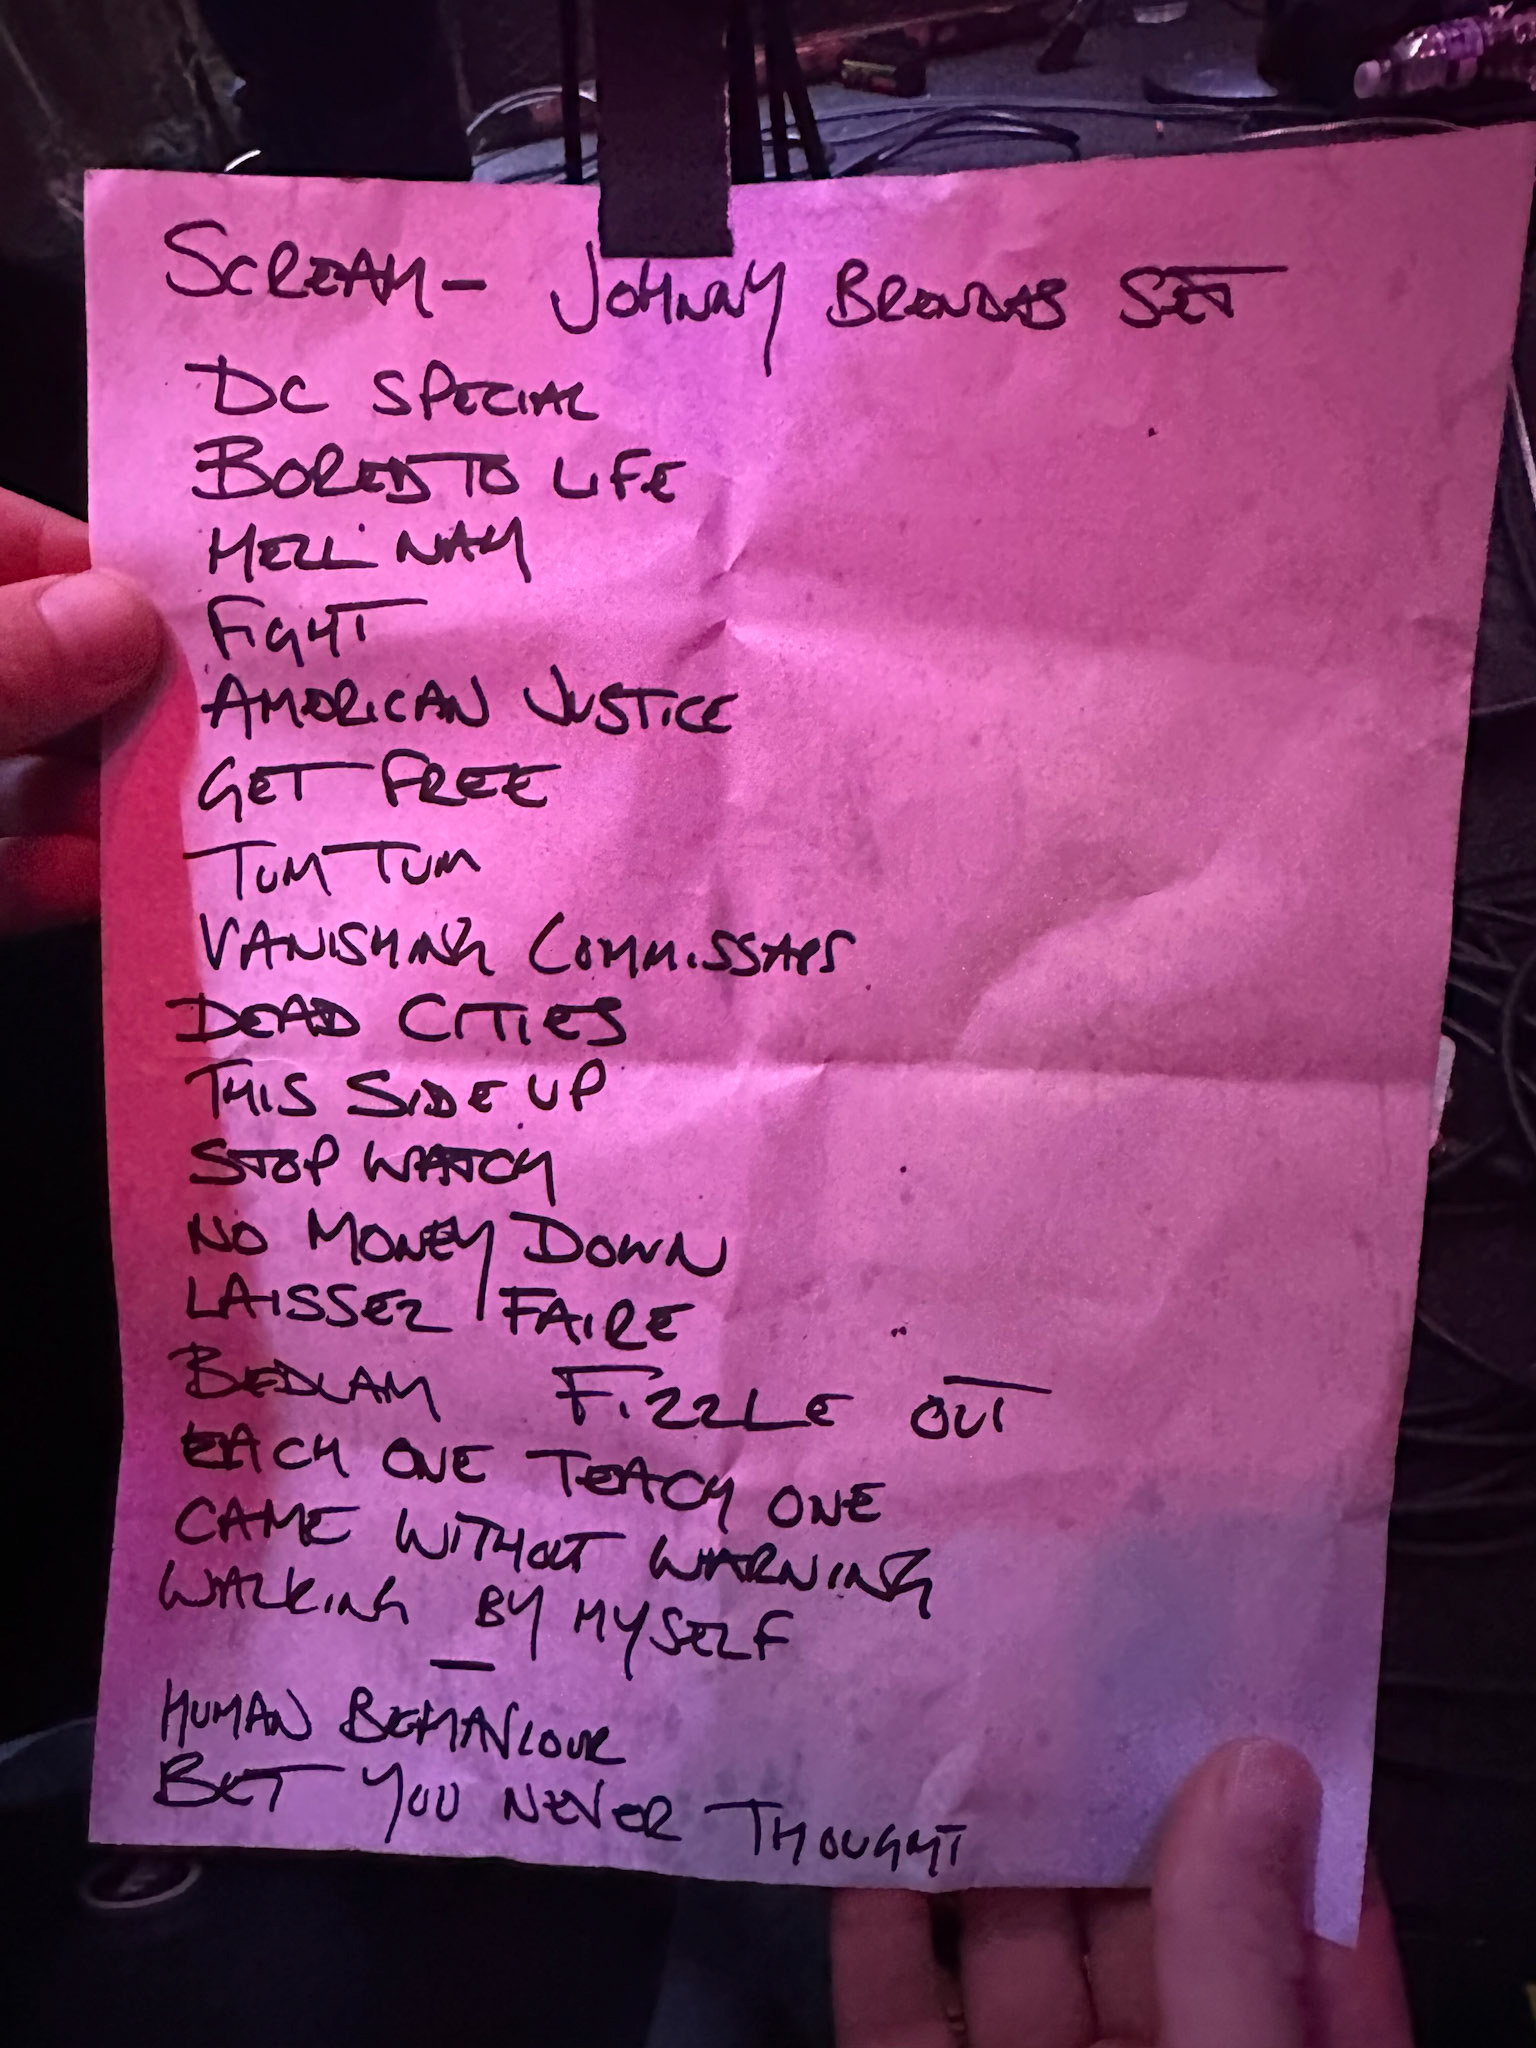 SCREAM - JOHNNY BRENDAS SET
DC SPECIAL
BORED TO LIFE
HELL NAH
FIGHT
AMERICAN JUSTICE
GET FREE
TUM TUM
VANISHING COMMISSARS
DEAD CITIES
THIS SIDE UP
STOP WATCH
NO MONEY DOWN
LAISSEZ FAIRE
BEDLAM FIZZLE OUT
EACH ONE TEACH ONE
CAME WITHOUT WARNING
WALKING BY MYSELF
—
HUMAN BEHAVIOUR
BET YOU NEVER THOUGHT